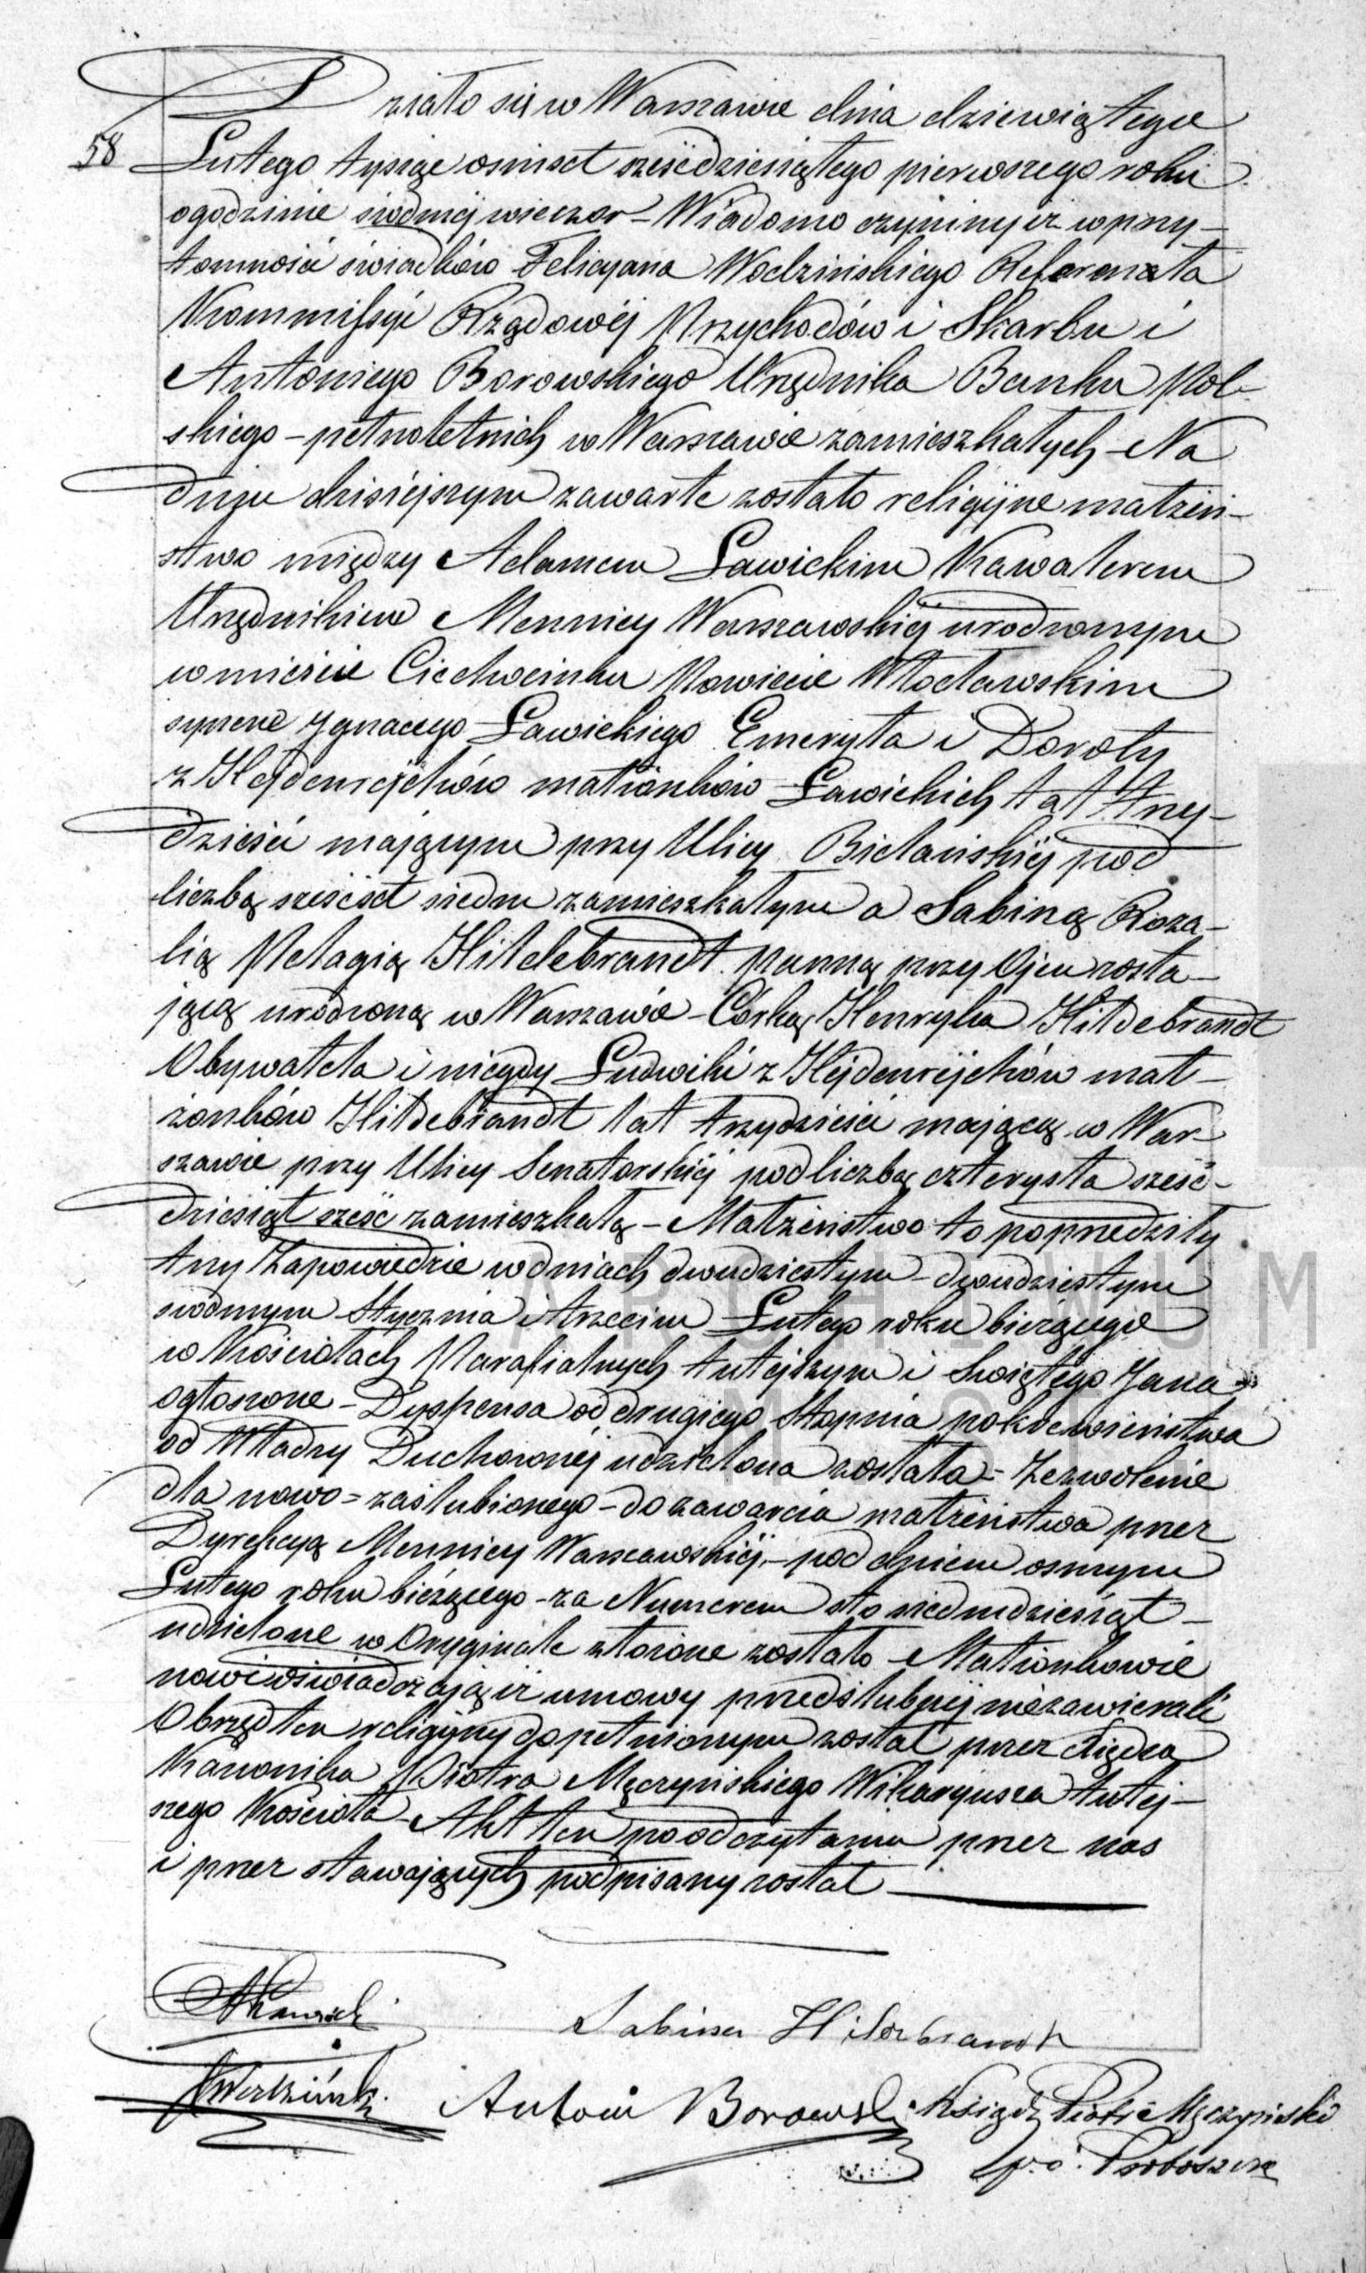 Działo się w Warszawie dnia dziewiątego
58 Lutego tysiąc ośmset sześćdziesiątego pierwszego roku
o godzinie siódmej wieczor – Wiadomo czynimy iż w przy-
tomności świadków Felicyana Wodzińskiego Referenta
Kommissyi Rządowéj Przychodów i Skarbu i
Antoniego Borowskiego Urzędnika Banku Pol-
skiego – pełnoletnich w Warszawie zamieszkałych – Na
dniu dzisiéjszym zawarte zostało religijne małżeń-
stwo między Adamem Ławickim Kawalerem
Urzędnikiem Mennicy Warszawskiéj urodzonym
w mieście Ciechocinku Powiecie Włocławskim
synem Ignacego Ławickiego Emeryta i Doroty
z Hejdenrejchów małżonków Ławickich lat trzy-
dzieści mającym przy Ulicy Bielańskiéj pod
liczbą sześćset siedm zamieszkałym a Sabiną Roza-
lią Pelagią Hildebrandt panną przy Ojcu zosta-
jącą urodzoną w Warszawie – Córką Henryka Hildebrandt
Obywatela i niegdy Ludwiki z Hejdenrejchów mał-
żonków Hildebrandt lat trzydzieści mającą w War-
szawie przy Ulicy Senatorskiéj pod liczbą czterysta sześć-
dziesiąt sześć zamieszkałą – Małżeństwo to poprzedziły
trzy Zapowiedzie w dniach dwudziestym – dwudziestym
siódmym Stycznia Trzecim Lutego roku bieżącego
w Kościołach Parafialnych tutejszym i Świętego Jana
ogłoszone – Dyspensa od drugiego Stopnia pokrewieństwa
od Władzy Duchownéj udzielona została – Zezwolenie
dla nowo-zaślubionego – do zawarcia małżeństwa przez
Dyrekcyą Mennicy Warszawskiéj – pod dniem osmym
Lutego roku bieżącego – za Numerem sto siedmdziesiąt –
udzielone w Oryginale złożone zostało – Małżonkowie
nowi oświadczają iż umowy przedślubnéj niezawierali
Obrzęd ten religijny dopełnionym został przez Księdza
Kanonika Piotra Męczyńskiego Wikaryusza tutej-
szego Kościoła – Akt ten po odczytaniu przez nas
i przez stawających podpisany został
ALawicki
Sabina Hildebrandt
FWodziński
Antoni Borowski
Ksiądz Piotr Męczyński
p.o. Proboszcza
ARCHIWUM